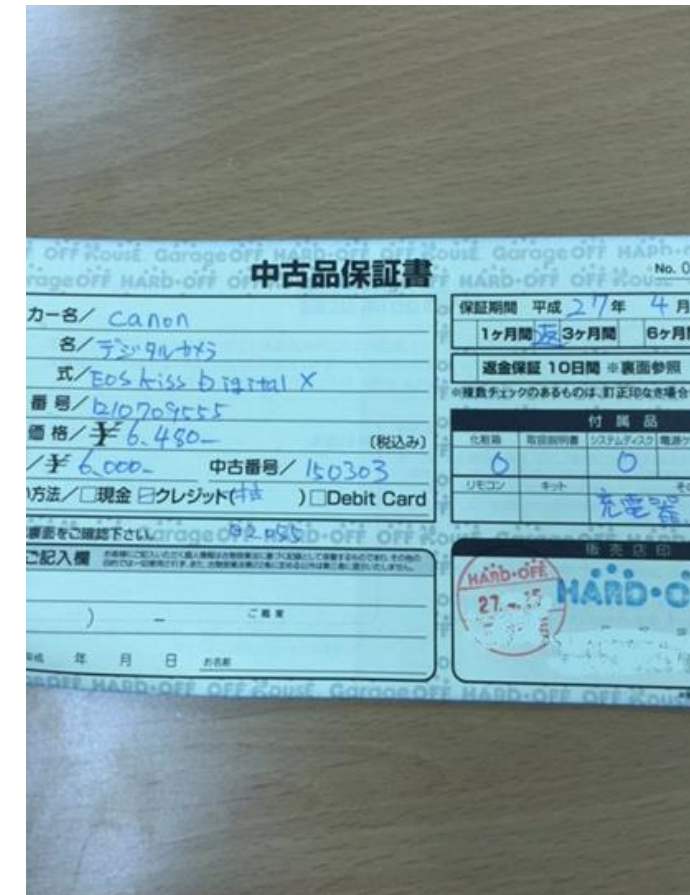 中古品保証書
No. 0
カー名/ Canon
名/デジタルカメラ
式/EOS kiss Digital X
番号/1210709555
価格/¥6,480- (税込み)
/¥6,000- 中古番号/150303
方法/□現金 ☑クレジット( ) □Debit Card
裏面をご確認下さい。
ご記入欄
) - ご職業
年 月 日 お名前
保証期間 平成27年 4月
1ヶ月間 返 3ヶ月間 6ヶ月間
返金保証 10日間 ※裏面参照
※複数チェックのあるものは、訂正印なき場合
付属品
化粧箱 取扱説明書 システムディスク 電源ケ
リモコン キット その
充電器
販売店印
HARD・OFF
27.
HARD・O